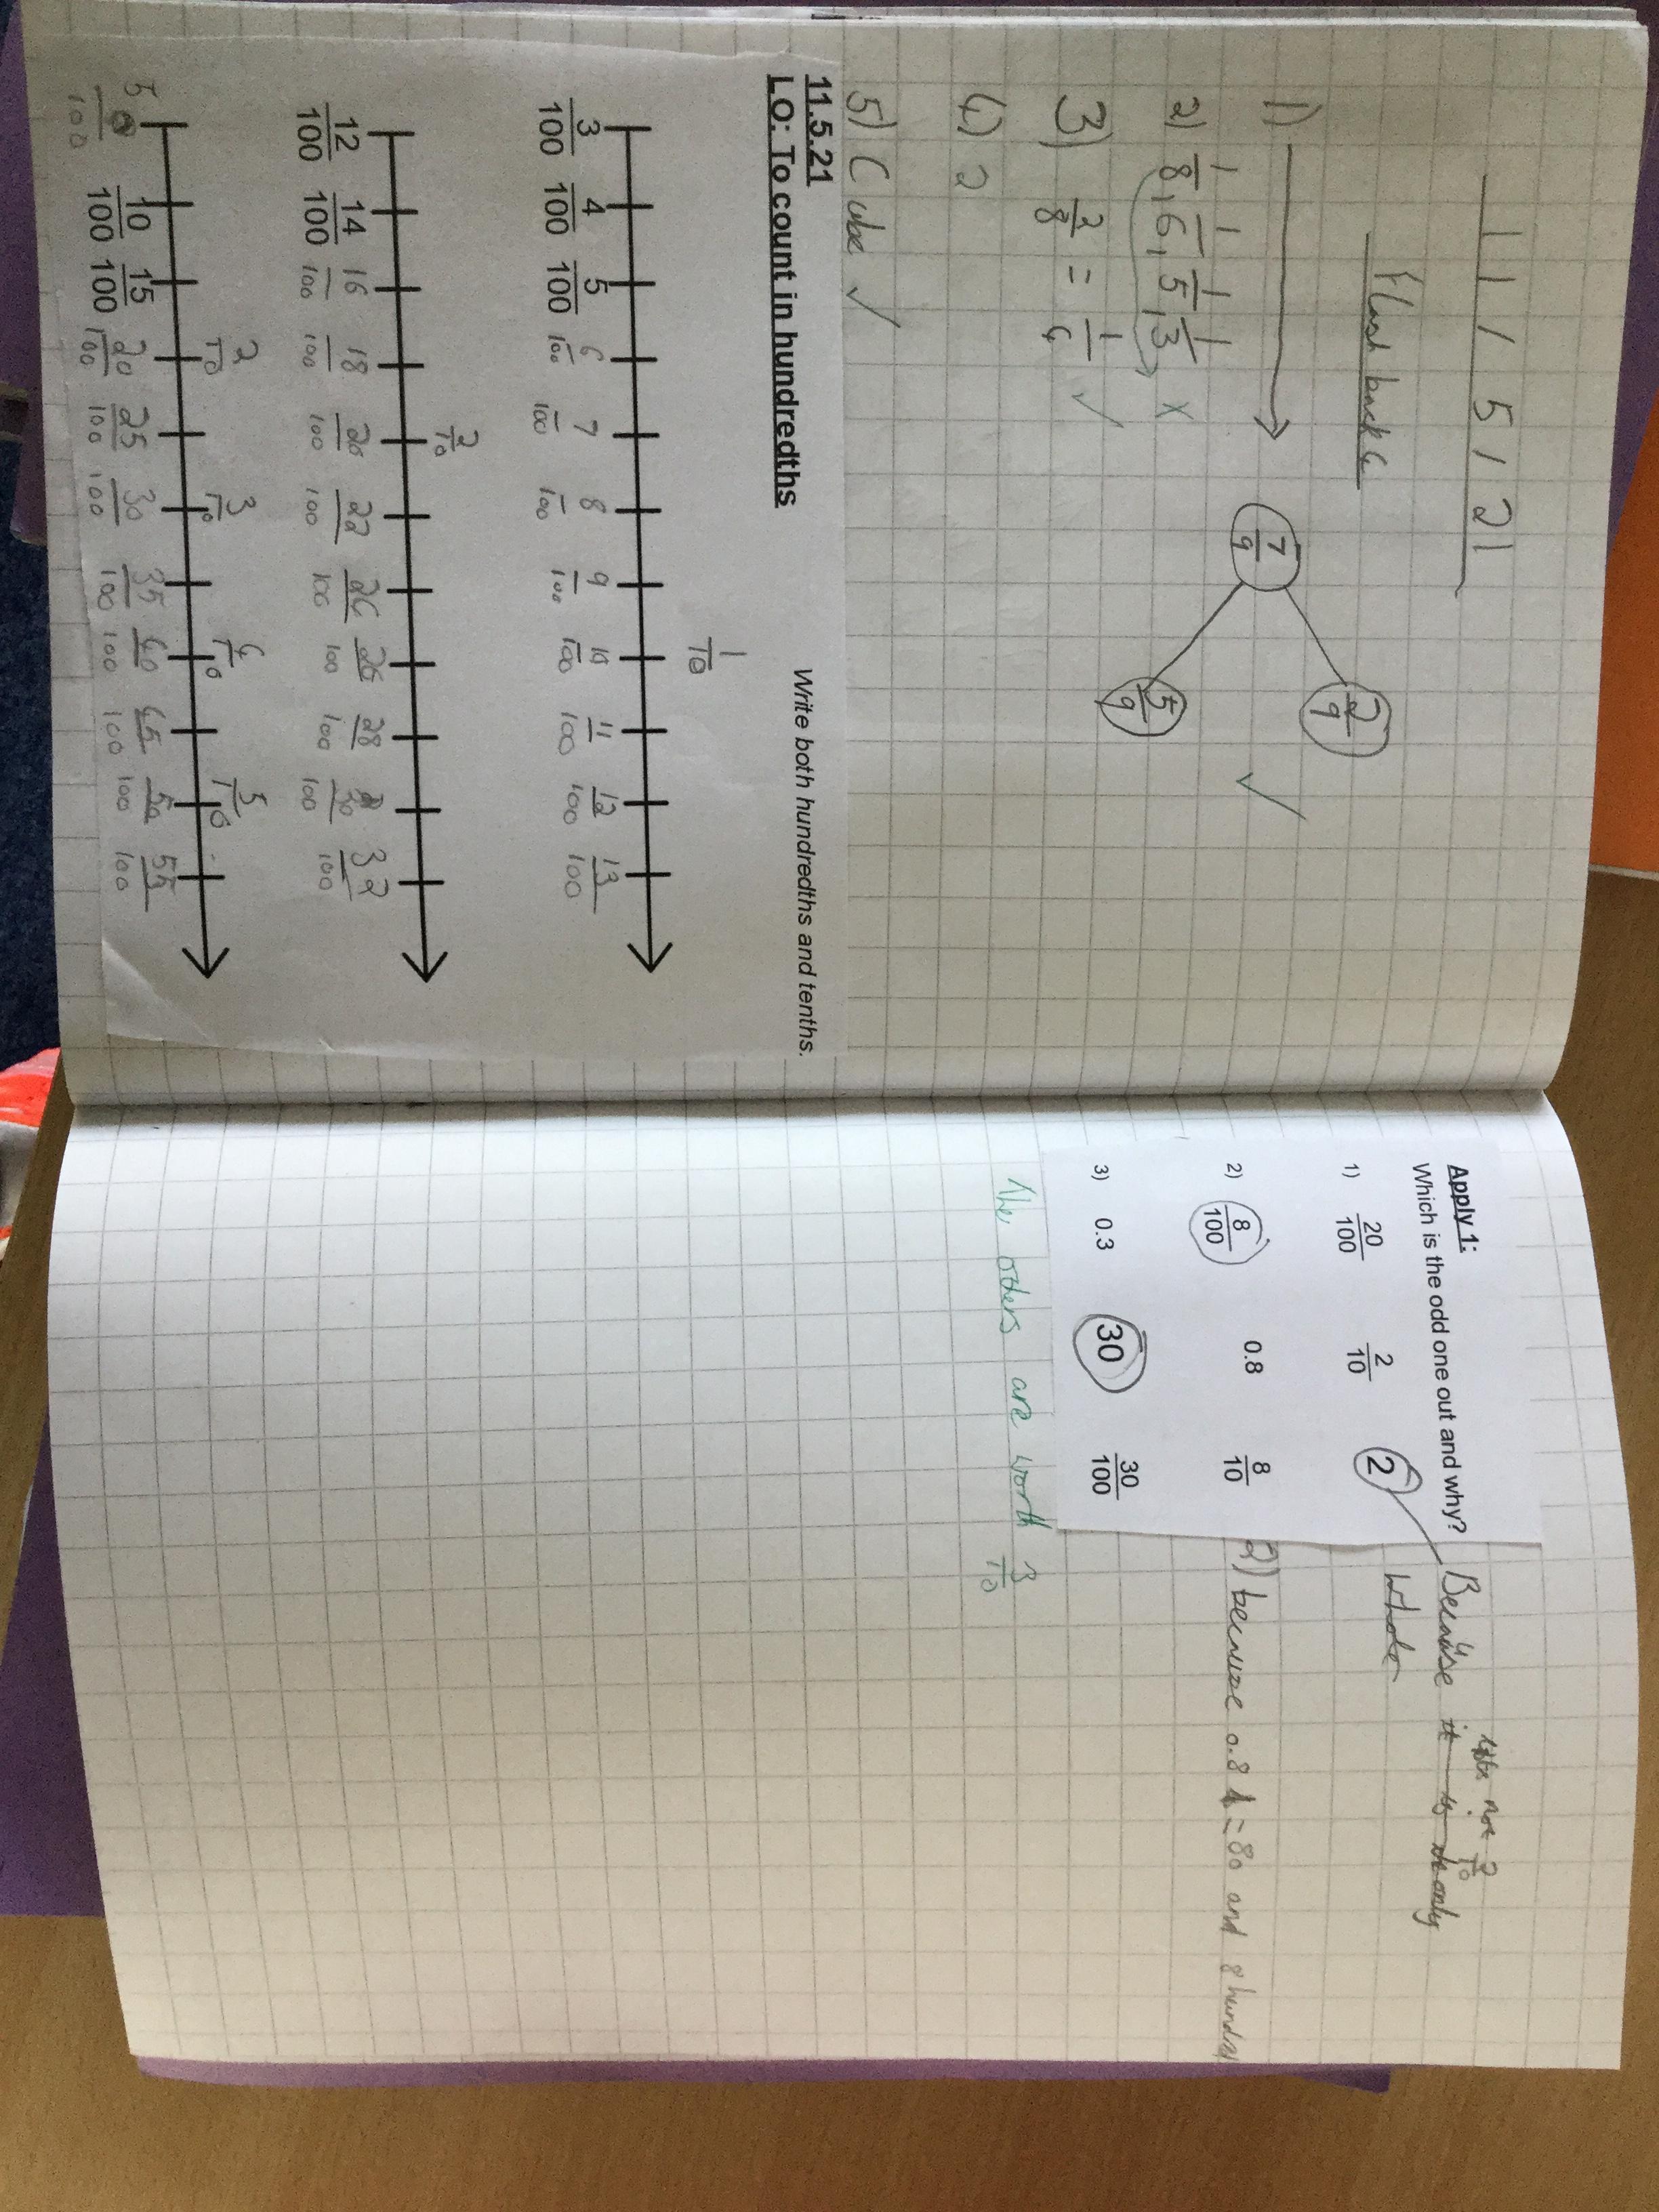 11/5/21
Flashback 4
1) 7/9 2/9 5/9 ✓
2) 1/8, 1/6, 1/5, 1/3 x
3) 2/8 = 1/4 ✓
4) 2
5) Cube ✓
11.5.21
LO: To count in hundredths
Write both hundredths and tenths.
1/10
3/100 4/100 5/100 6/100 7/100 8/100 9/100 10/100 11/100 12/100 13/100
2/10
12/100 14/100 16/100 18/100 20/100 22/100 24/100 26/100 28/100 30/100 32/100
2/10 3/10 4/10 5/10
5/100 10/100 15/100 20/100 25/100 30/100 35/100 40/100 45/100 50/100 55/100
Apply 1:
Which is the odd one out and why?
1) 20/100 2/10 2
not 2/10
Because it is only
whole
2) 8/100 0.8 8/10
2) because 0.8 = 80 and 8 hundred
3) 0.3 30 30/100
The others are worth 3/10